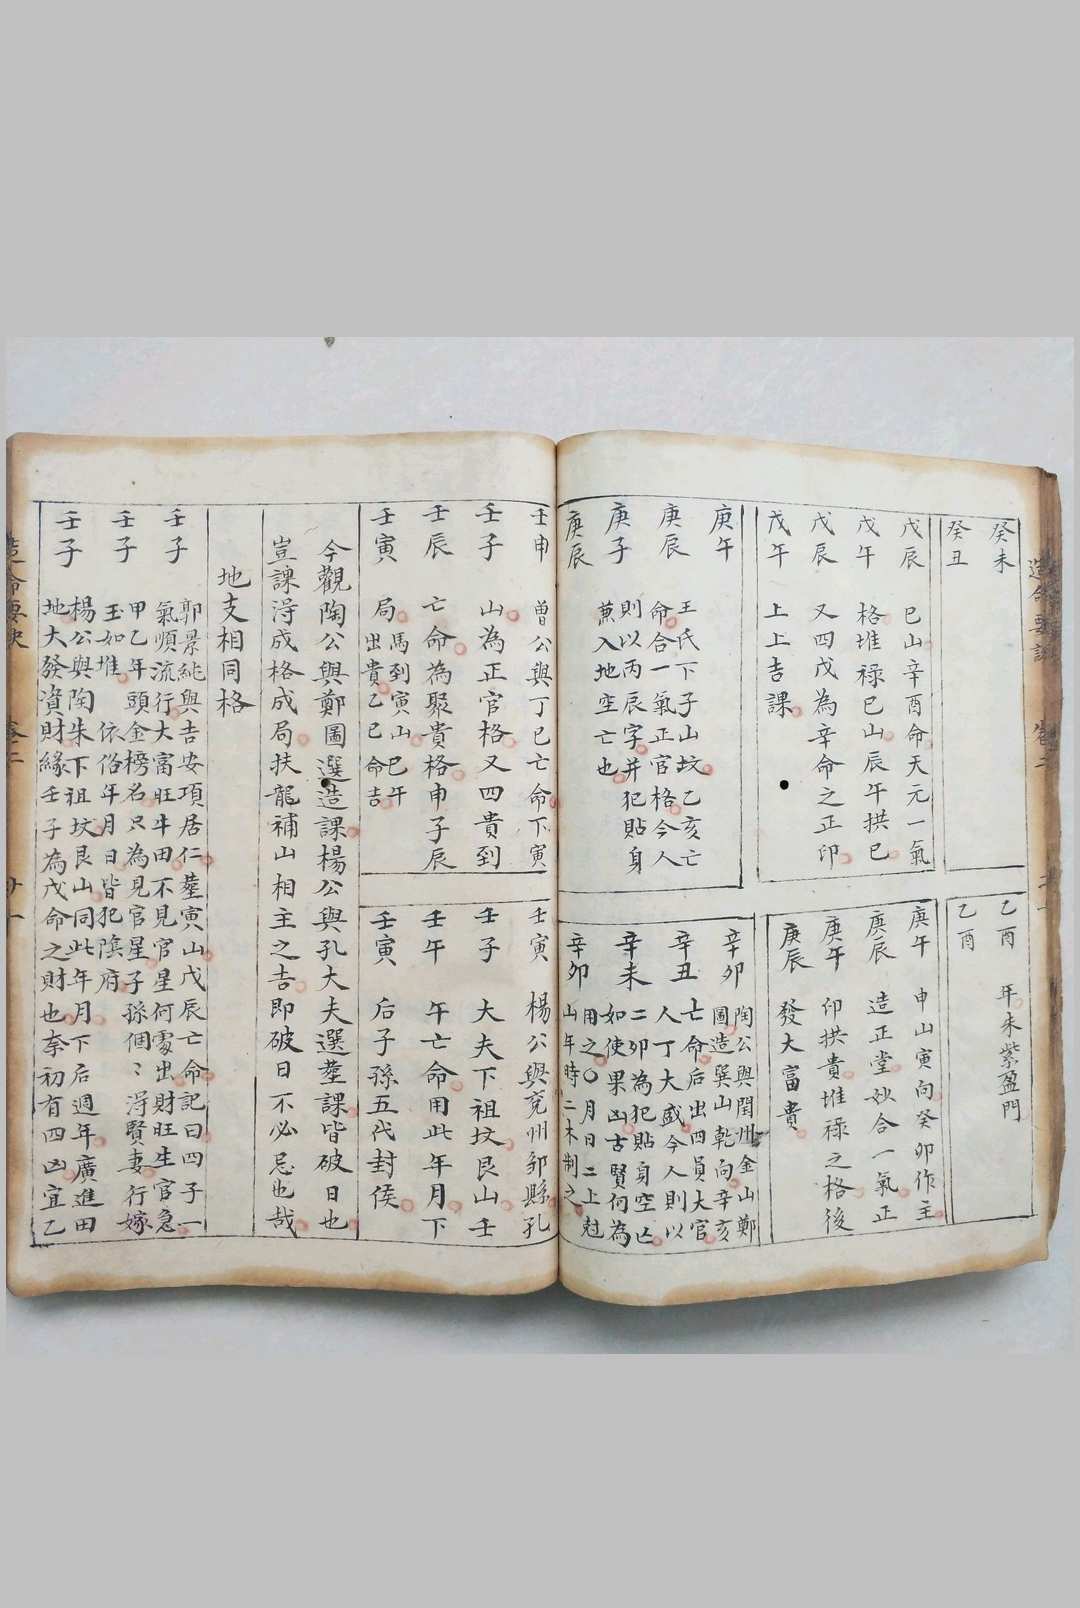 癸未
癸丑
乙酉 年未紫盈門
乙酉
戊辰 巳山辛酉命天元一氣
戊午 格堆祿巳山辰午拱巳
戊辰 又四戊為辛命之正印
戊午 上上吉課
庚午 申山寅向癸卯作主
庚辰 造正堂妙合一氣正
庚午 印拱貴堆祿之格後
庚辰 發大富貴
庚午
庚辰
庚子
庚辰
王氏下子山坟乙亥亡
命合一氣正官格今人
則以丙辰字并犯貼身
蔗入地空亡也
辛卯
辛丑
辛未
辛卯
陶公與閏州金山鄭
圖造巽山乾向辛亥
亡命后出四員大官
人丁大盛今人則以
二卯為犯貼身空亡
如使果凶古賢何為
用之〇月日二上尅
山年時二木制之
壬申 曾公與丁巳亡命下寅
壬子 山為正官格又四貴到
壬辰 亡命為聚貴格申子辰
壬寅 局馬到寅山巳午
出貴乙巳命吉
壬寅 楊公與兗州邹縣孔
壬子 大夫下祖坟艮山壬
壬午 午亡命用此年月下
壬寅 后子孫五代封侯
今觀陶公與鄭圖選造課楊公與孔大夫選塟課皆破日也
豈課淂成格成局扶龍補山相主之吉即破日不必忌也哉
地支相同格
壬子
壬子
壬子
郭景純與吉安項居仁塟寅山戊辰亡命記曰四子一
氣順流行大富旺牛田不見官星何處出財旺生官急
甲乙年頭金榜名只為見官星子孫個〻淂賢妻行嫁
玉如堆 依俗年月日皆犯隂府
楊公與陶朱下祖坟艮山同此年月下后週年廣進田
地大發資財緣壬子為戊命之財也奈初有四凶宜乙